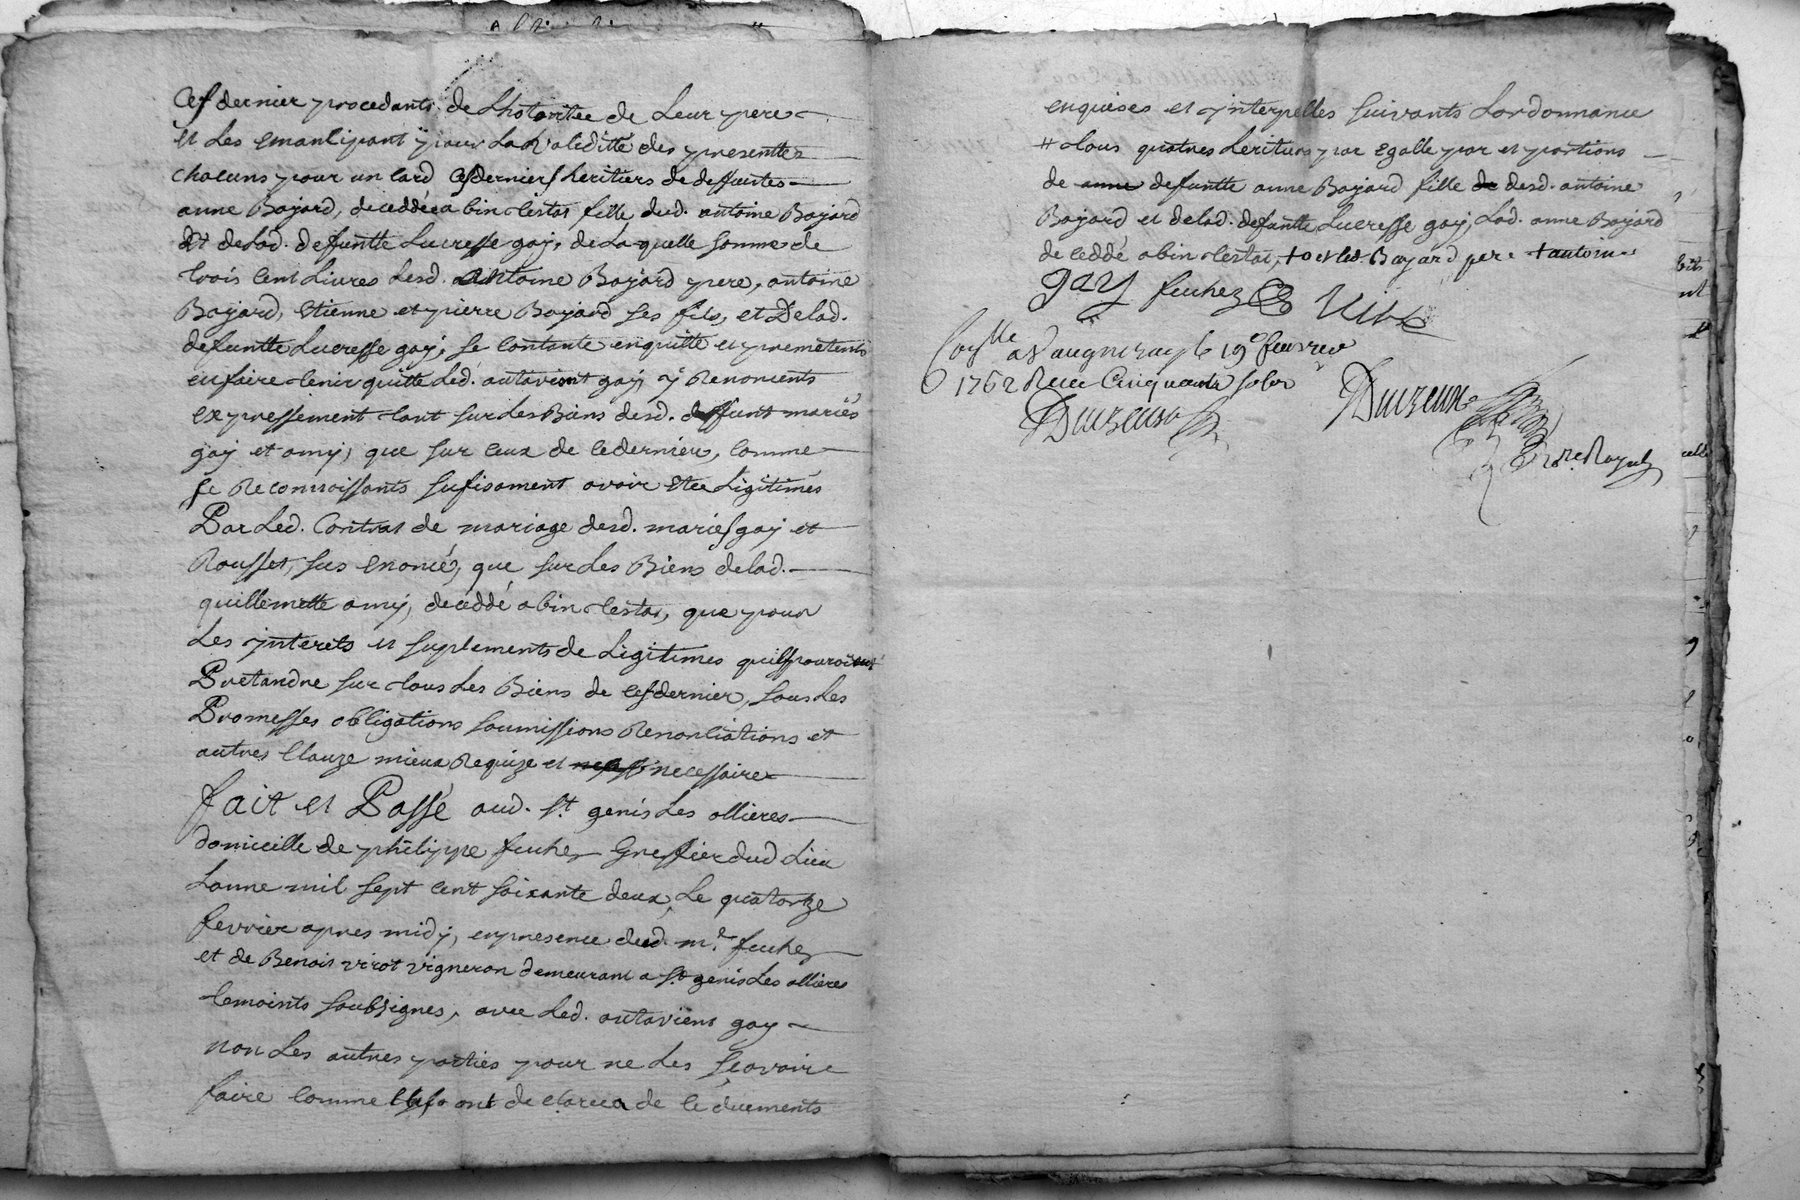 Ces dernier procedants de Lhotoritee de Leur pere
et Les emancipant pour La Valeditté des presenttes
chacuns pour un card Ces derniers heritiers de deffuntes
anne Bajard, deceddée abin testat fille dud. antoine Bajard
Et de Lad. defuntte Lucresse gay, de Laquelle somme de
trois cent Livres Lesd. antoine Bajard pere, antoine
Bajard, Etienne et pierre Bajard ses fils, et De Lad.
defuntte Lucresse gay, se contante enquitte et prometents
en faire tenir quitte Led. autaviont gay y Renoncents
expressement tant sur Les Biens desd. deffunt mariés
gay et amy, que sur ceux de ce dernier, comme
se Reconnoissants sufisament avoir etee Légitimés
Par Led. Contrat de mariage desd. mariés gay et
Rousset, sus enoncé, que sur Les Biens de Lad.
guillemette amy, deceddé abin testat, que pour
Les jnterets et suplements de Légitimes quils pouroient
Pretandre sur tous Les Biens de ces dernier, sous Les
Promesses obligations soumissions Renontiations et
autres Clauze mieux Requize et necessaires
fait et Passé aud. St. genis Les ollieres
domicille de philippe feuhez Greffier dud Lieu
Lanne mil sept cent soixante deux, Le quatorze
fevrier apres midy, en presence dud. me. feuhez
et de Benois virot vigneron demeurant a St. genis Les ollieres
temoints soubsignes, avec Led. autaviens gay
non Les autres parties pour ne Les sçavoir
faire comme ils ont declarcea de ce duements
enquises et jnterpelles suivants Lordonnance
# tous quatres heritiers par egalle par et portions
de anne defuntte anne Bajard fille de desd. antoine
Bajard et de Lad. defuntte Lucresse gay, Lad. anne Bajard
deceddé abin testat, + o et led. Bajard pere + autoin
gay feuhez Virot
Con.lle a Vaugneray le 19e fevrier
1762 Recu Cinquante solz